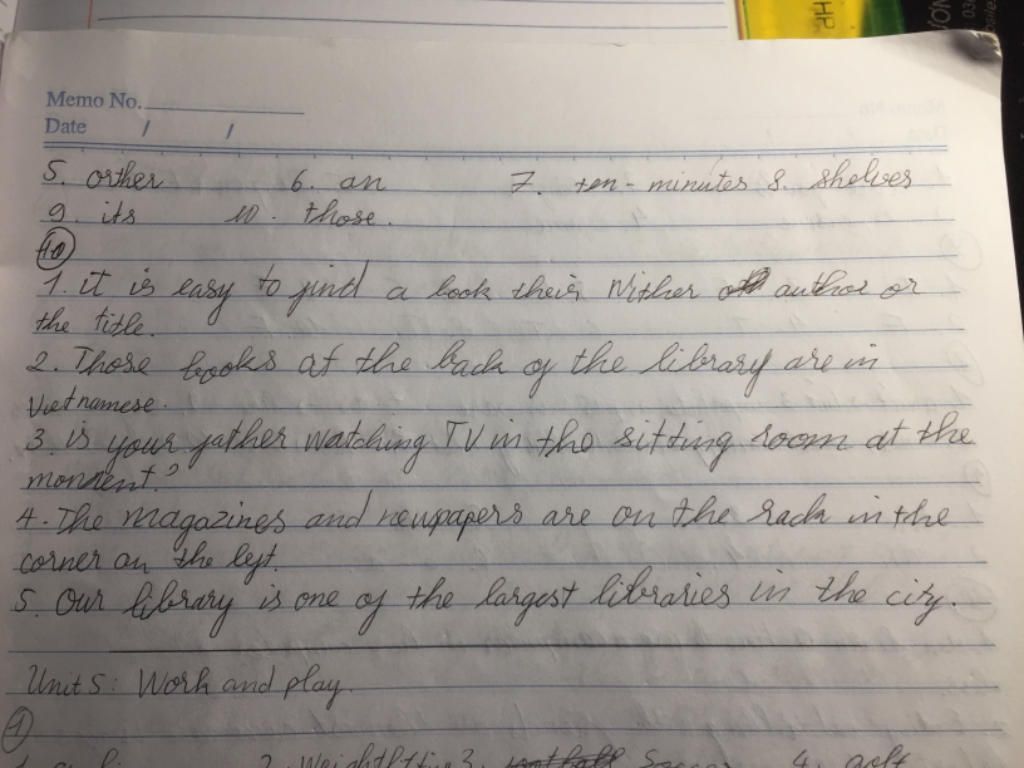 HP
Memo No.
Date / /
5. orther 6. an 7. ten-minutes 8. shelves
9. its 10. those.
10
1. it is easy to find a book their Nither author or
the title.
2. Those books at the back of the library are in
Vietnamese.
3. is your father watching TV in the sitting room at the
moment?
4. The magazines and newpapers are on the rack in the
corner on the left.
5. Our library is one of the largest libraries in the city.
Unit 5: Work and play.
1
2. 3. 4. golf